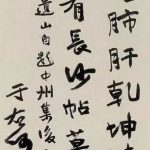 肺肝乾坤
有長沙帖莫
遺山自題中州集後
于右任